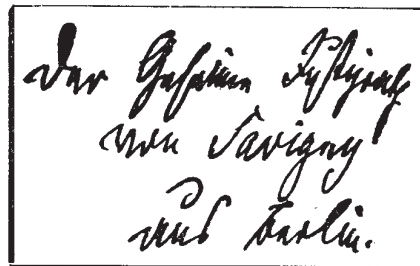 der Geheime Justizrath
von Savigny
aus Berlin.